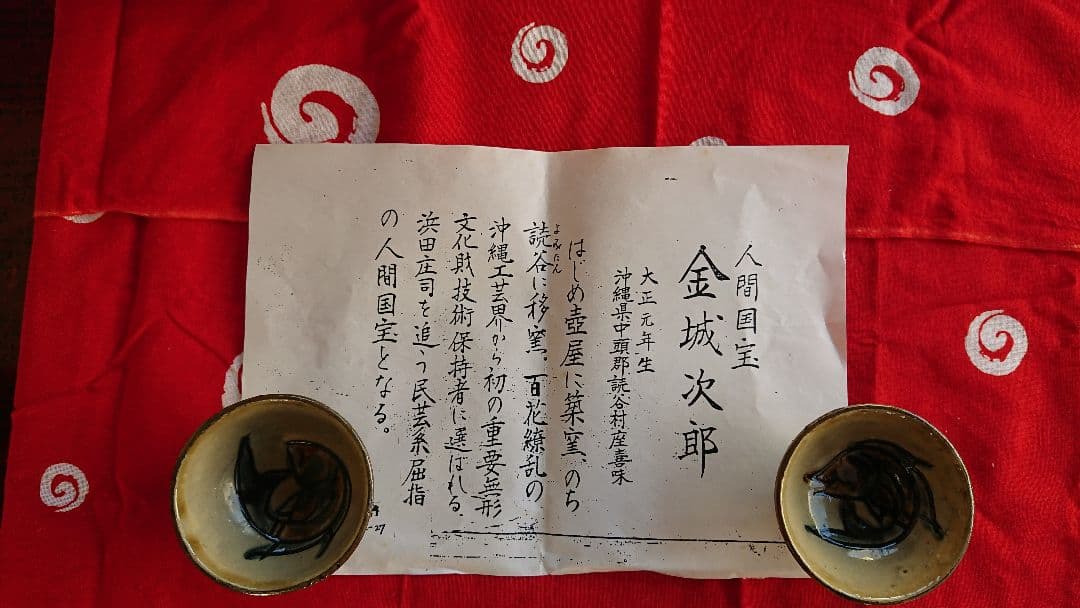 人間国宝
金城次郎
大正元年生
沖縄県中頭郡読谷村座喜味
はじめ壺屋に築窯、のち
よみたん
読谷に移窯。百花繚乱の
沖縄工芸界から初の重要無形
文化財技術保持者に選ばれる。
浜田庄司を追う民芸系屈指
の人間国宝となる。
-27